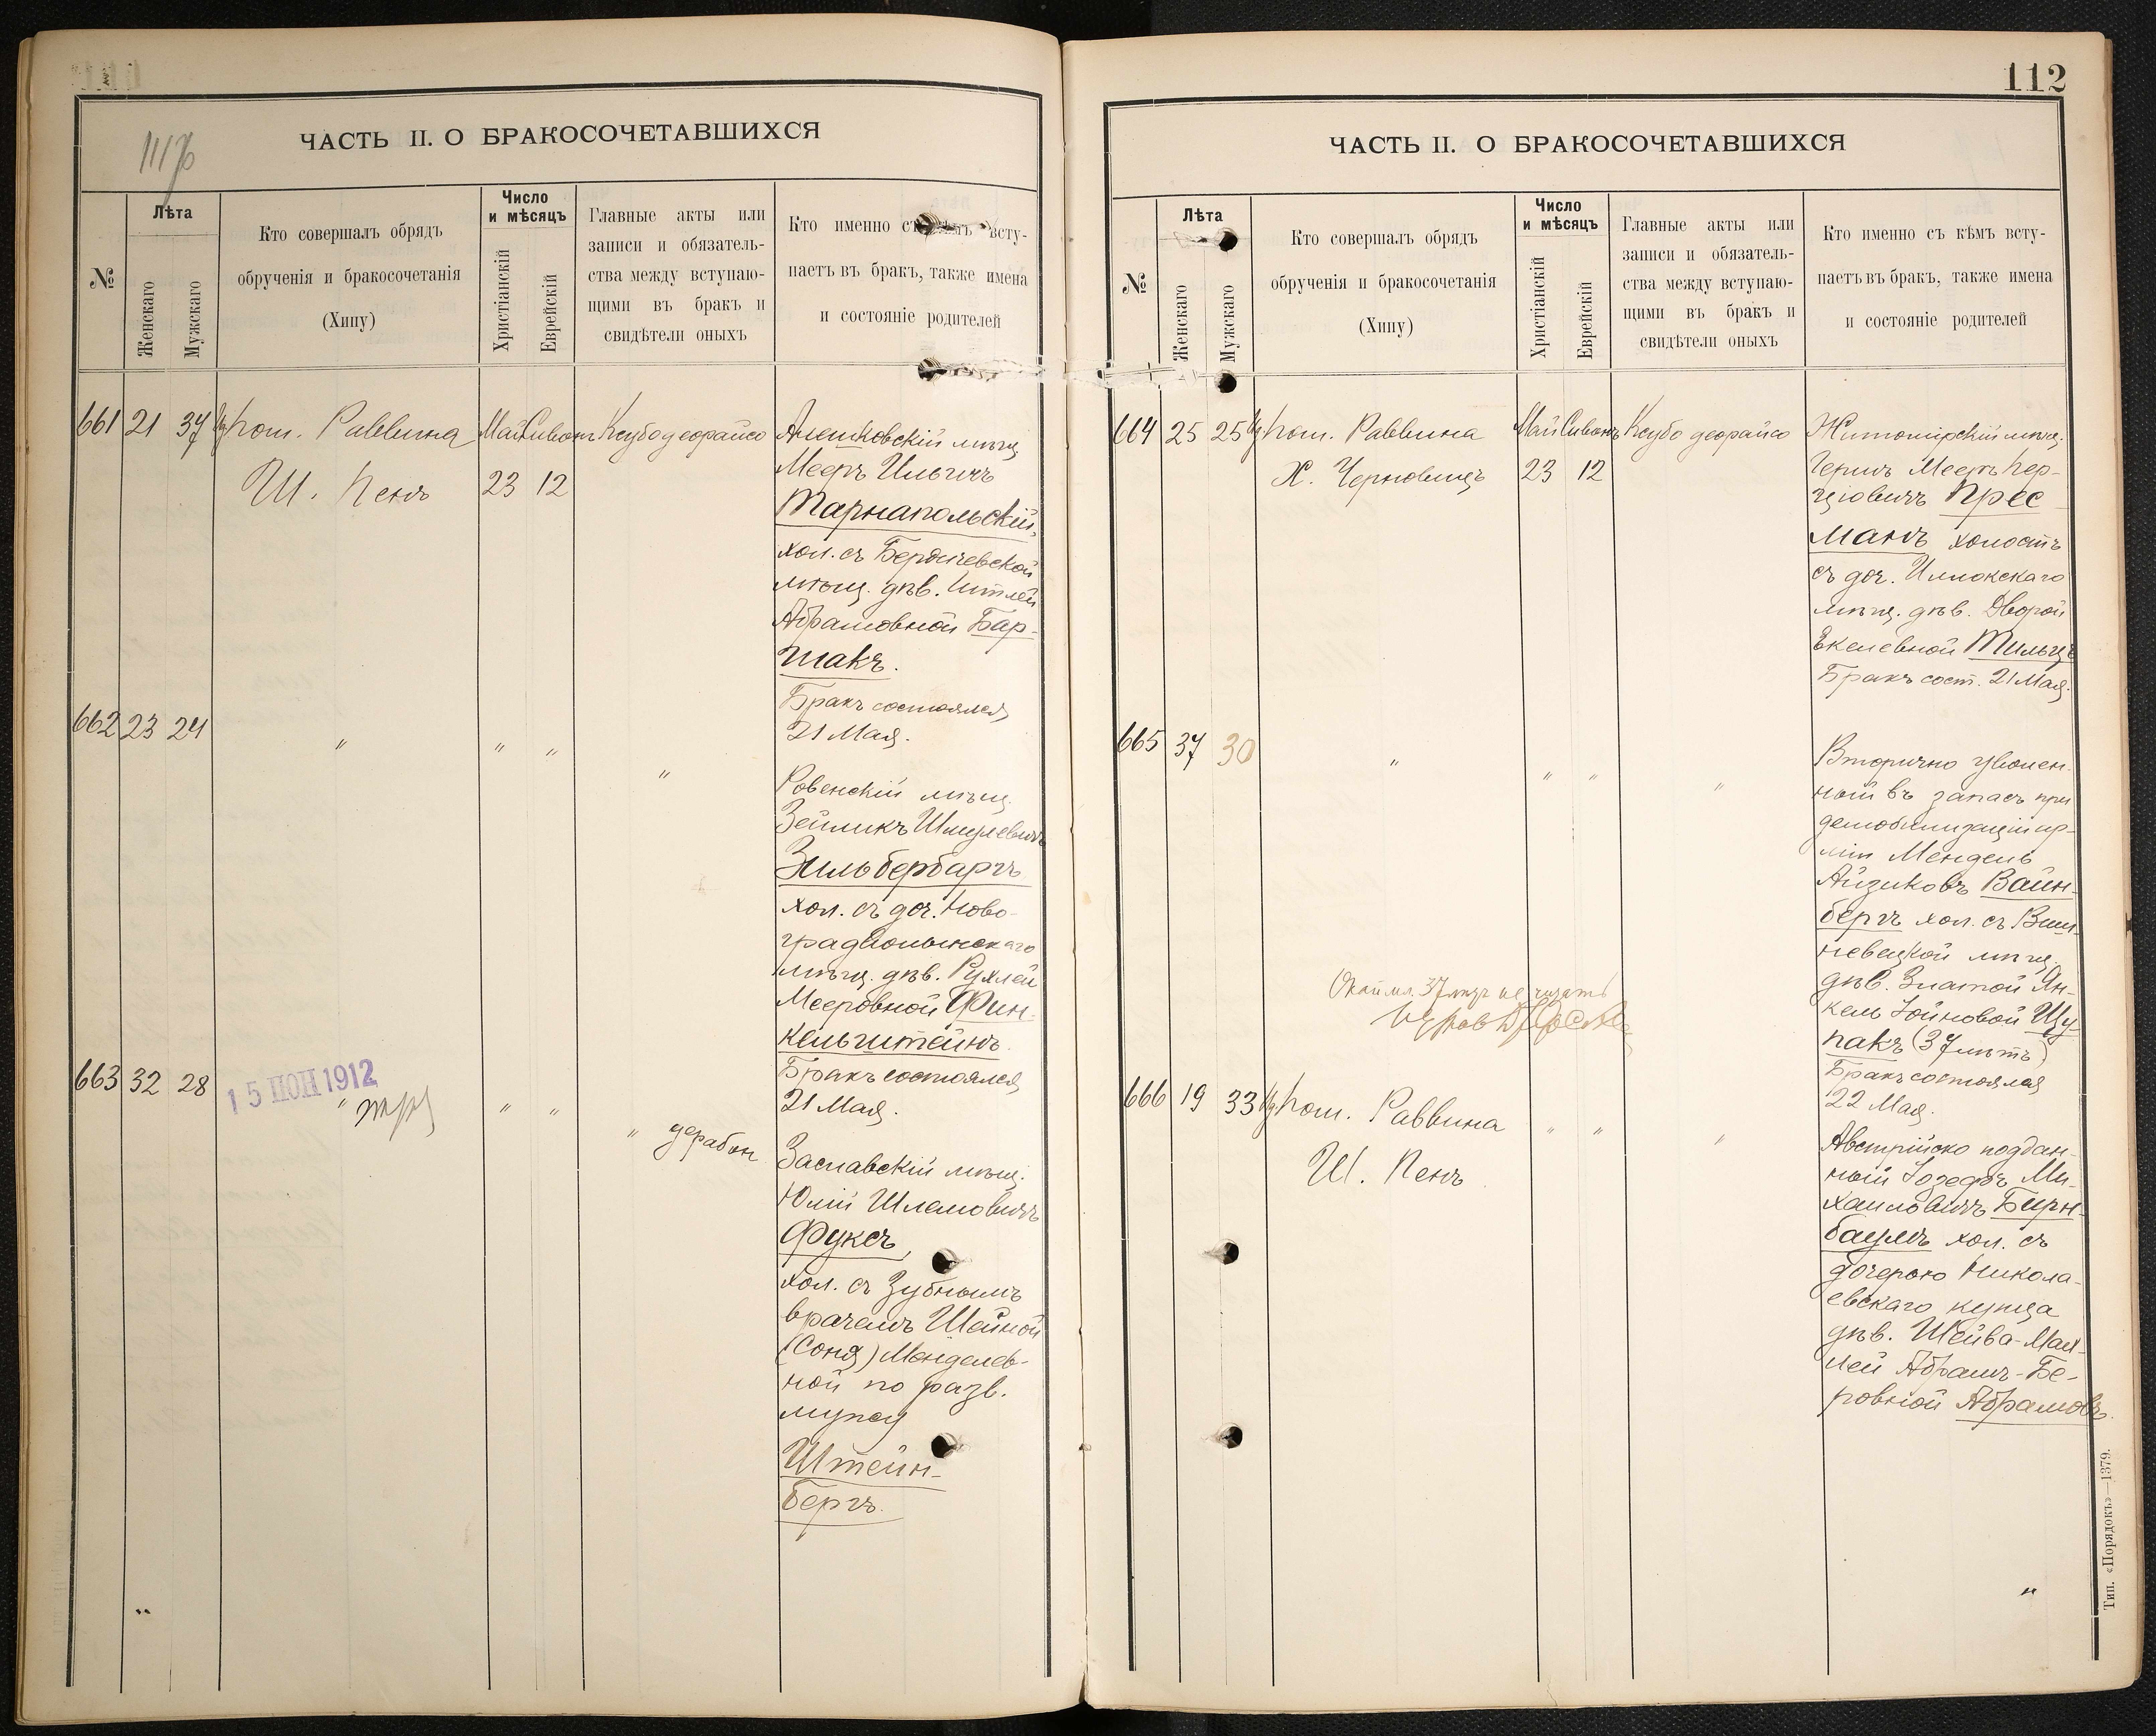 111 об
ЧАСТЬ II. О БРАКОСОЧЕТАВШИХСЯ
№
Лѣта
Женскаго
Мужскаго
Кто совершалъ обрядъ
обрученія и бракосочетанія
(Хипу)
Число
и мѣсяцъ
Христіанскій
Еврейскій
Главные акты или
записи и обязатель-
ства между вступаю-
щими въ бракъ и
свидѣтели оныхъ
Кто именно съ кѣмъ всту-
паетъ въ бракъ, также имена
и состояніе родителей
661 21 37 Пом. Раввина Май Сивонъ Ксубо деорайсо
Ш. Пенъ 23 12
Алешковскій мѣщ.
Мееръ Ильичъ
Тарнапольскій,
хол. съ Бердичевской
мѣщ. дѣв. Итлей
Абрамовной Бар-
шакъ.
Бракъ состоялся
21 Мая.
662 23 24 " " " "
Ровенскій мѣщ.
Зейликъ Шмулевичъ
Зильбербаргъ
хол. съ доч. Ново-
градволынскаго
мѣщ. дѣв. Рухлей
Мееровной Фин-
кельштейнъ.
Бракъ состоялся
21 Мая.
663 32 28 " " " " дерабон
15 ІЮН 1912
Заславскій мѣщ.
Юлій Шлемовичъ
Фуксъ,
хол. съ Зубнымъ
врачемъ Шейной
(Соня) Менделев-
ной по разв.
мужу
Штейн-
бергъ.
112
ЧАСТЬ II. О БРАКОСОЧЕТАВШИХСЯ
№
Лѣта
Женскаго
Мужскаго
Кто совершалъ обрядъ
обрученія и бракосочетанія
(Хипу)
Число
и мѣсяцъ
Христіанскій
Еврейскій
Главные акты или
записи и обязатель-
ства между вступаю-
щими въ бракъ и
свидѣтели оныхъ
Кто именно съ кѣмъ всту-
паетъ въ бракъ, также имена
и состояніе родителей
664 25 25 Пом. Раввина Май Сивонъ Ксубо деорайсо
Х. Черновицъ 23 12
Житомірскій мѣщ.
Гершъ Мееръ Гер-
цовичъ Прес
манъ холостъ
съ доч. Иллокскаго
мѣщ. дѣв. Дворой
Екелевной Тильцъ
Бракъ сост. 21 Мая.
665 37 30 " " " "
Вторично уволен-
ный въ запасъ при
демобилизаціи ар-
міи Мендель
Айзиковъ Вайн-
бергъ хол. съ Виш-
невецкой мѣщ.
дѣв. Златой Ян-
кель Іойновой Щу
пакъ (37 лѣтъ)
Бракъ состоялся
22 Мая.
666 19 33 Пом. Раввина " " "
Ш. Пенъ
Австрійско поддан-
ный Іозефъ Ми-
хаиловичъ Бирн-
баумъ хол. съ
дочерью Никола-
евскаго купца
дѣв. Шейва-Мал-
лей Абрамъ-Бе-
ровной Абрамовъ.
Тип. «Порядокъ»—1379.